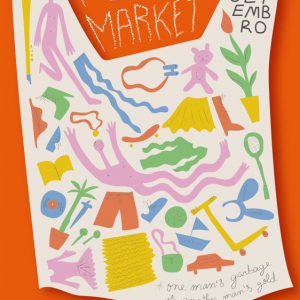 MARKET
SET
EMB
RO
* one man's garbage
is another man's gold